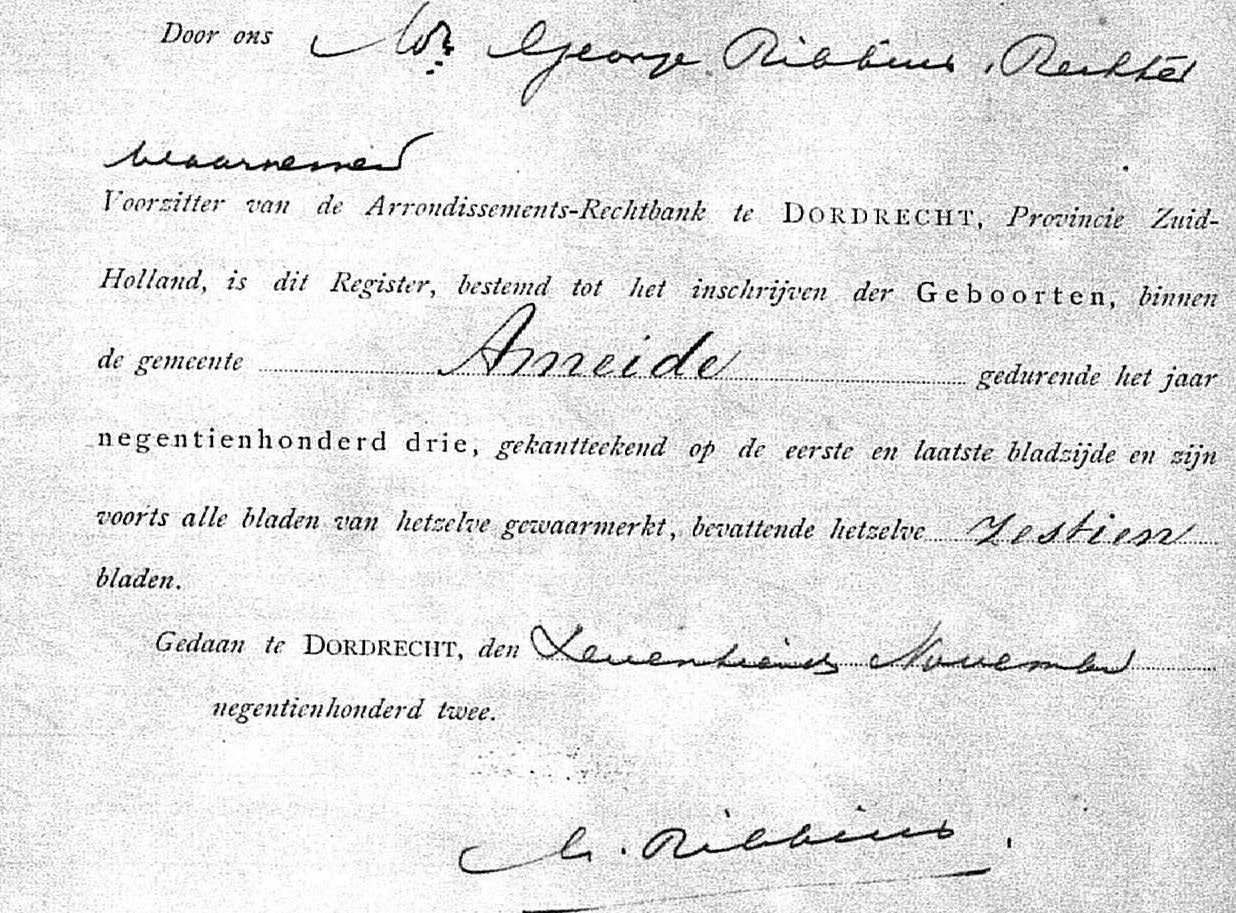 Door ons Mr. George Ribbius, Rechter
waarnemend
Voorzitter van de Arrondissements-Rechtbank te DORDRECHT, Provincie Zuid-
Holland, is dit Register, bestemd tot het inschrijven der Geboorten, binnen
de gemeente Ameide gedurende het jaar
negentienhonderd drie, gekantteekend op de eerste en laatste bladzijde en zijn
voorts alle bladen van hetzelve gewaarmerkt, bevattende hetzelve zestien
bladen.
Gedaan te DORDRECHT, den Zeventiende November
negentienhonderd twee.
G. Ribbius.